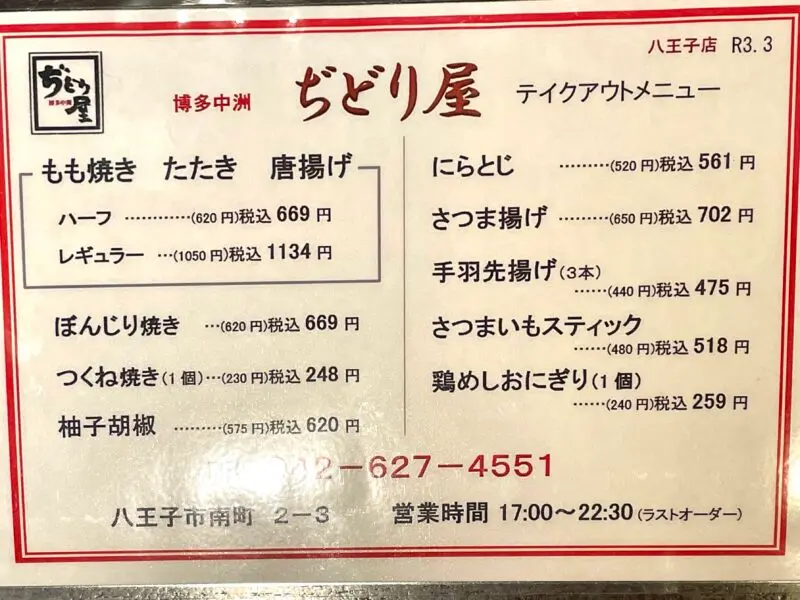 八王子店 R3.3
ぢどり屋
博多中洲
博多中洲 ぢどり屋 テイクアウトメニュー
もも焼き たたき 唐揚げ
ハーフ …………(620円)税込 669 円
レギュラー …(1050円)税込 1134 円
ぼんじり焼き …(620円)税込 669 円
つくね焼き(1個)…(230円)税込 248 円
柚子胡椒 ………(575円)税込 620 円
にらとじ ………(520円)税込 561 円
さつま揚げ ………(650円)税込 702 円
手羽先揚げ(3本)
……(440円)税込 475 円
さつまいもスティック
……(480円)税込 518 円
鶏めしおにぎり(1個)
……(240円)税込 259 円
42-627-4551
八王子市南町 2-3 営業時間 17:00~22:30(ラストオーダー)